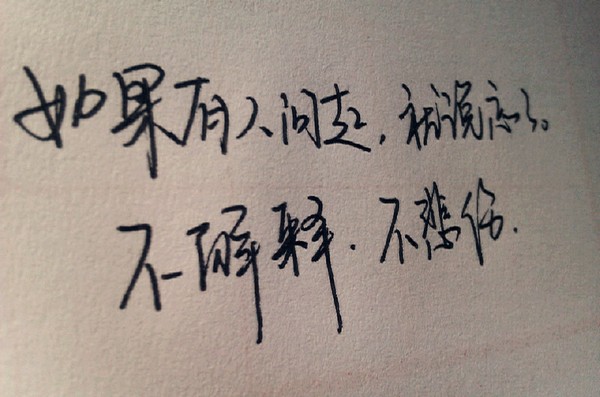 如果有人问起，就说忘了。
不解释．不悲伤．